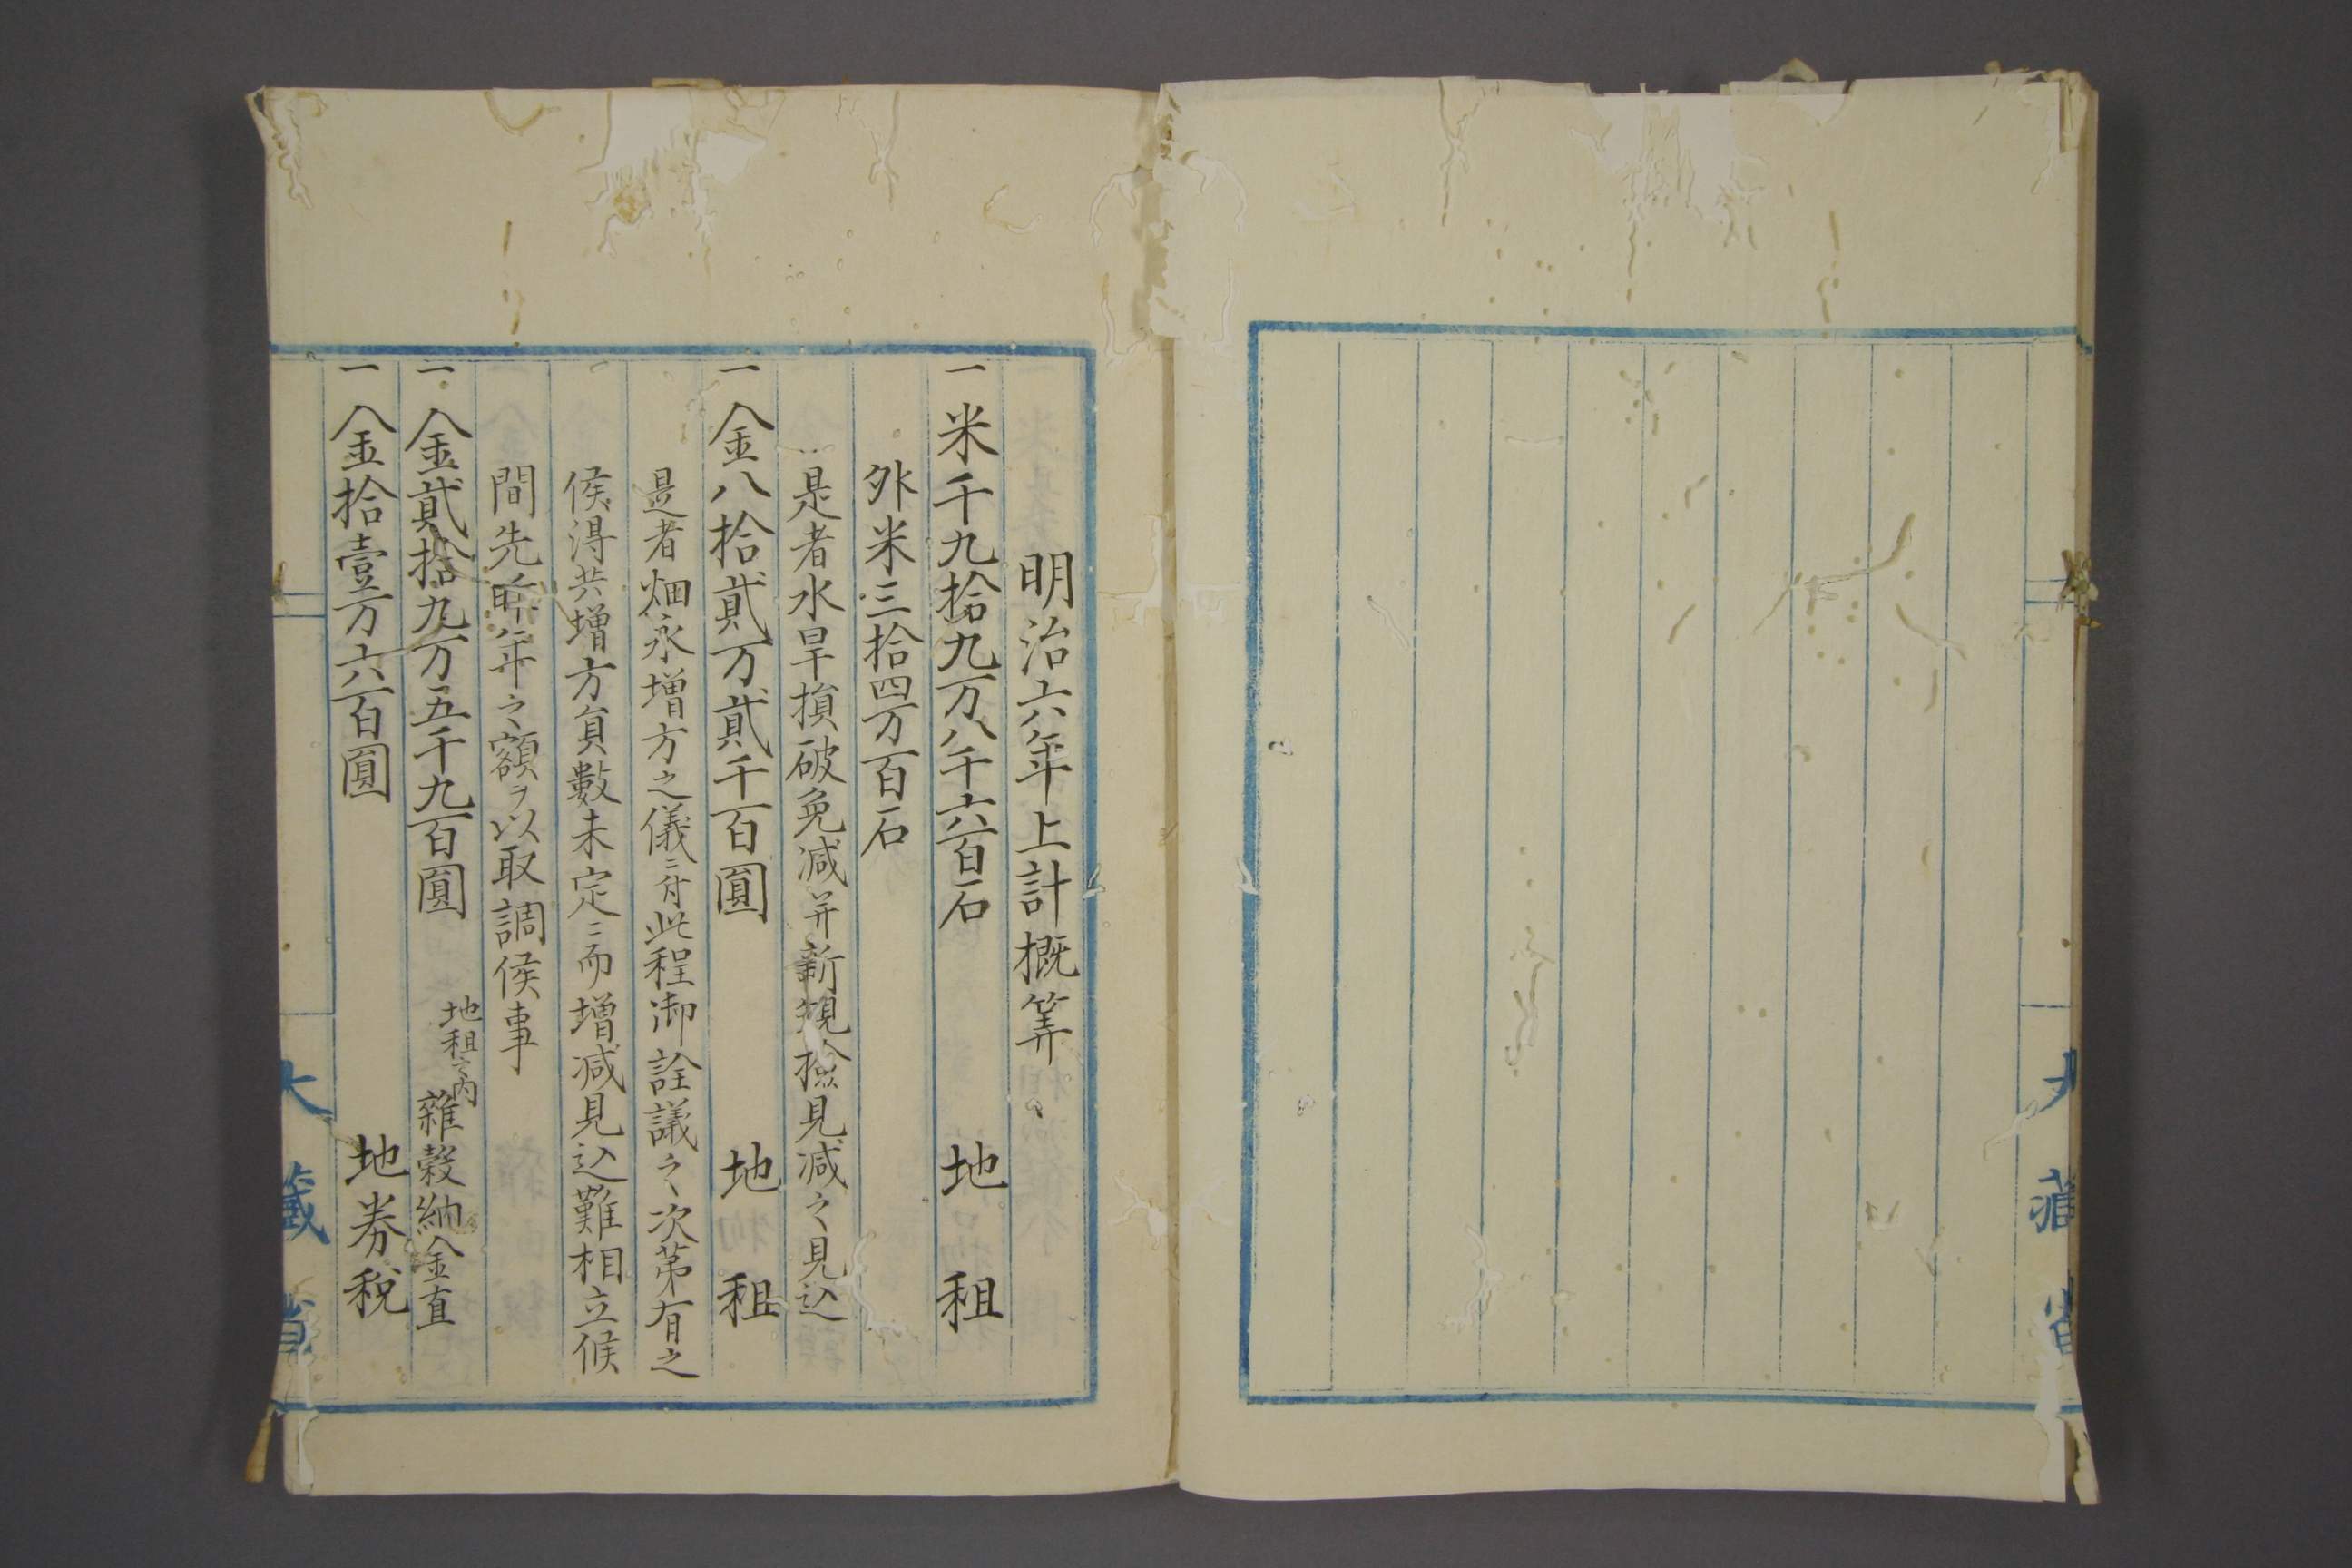 大藏省
明治六年上計概筭
一米千九拾九万八千六百石 地租
外米三拾四万百石
是者水旱損破免減并新規撿見减之見込
一金八拾貳万貳千百圓 地租
是者畑永増方之儀ニ付此程御詮議之次第有之
候得共増方員數未定ニ而増减見込難相立候
間先昨年之額ヲ以取調候事
一金貳拾九万五千九百圓 地租之内 雜穀納金直
一金拾壹万六百圓 地券税
大藏省